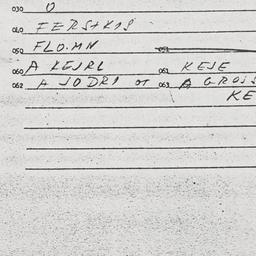 030 O
040 FERSAKIS
050 FLO.MN 051
060 A KEJRL 061 KEJE
062 A JODRI OT 063 A GROSS
KE